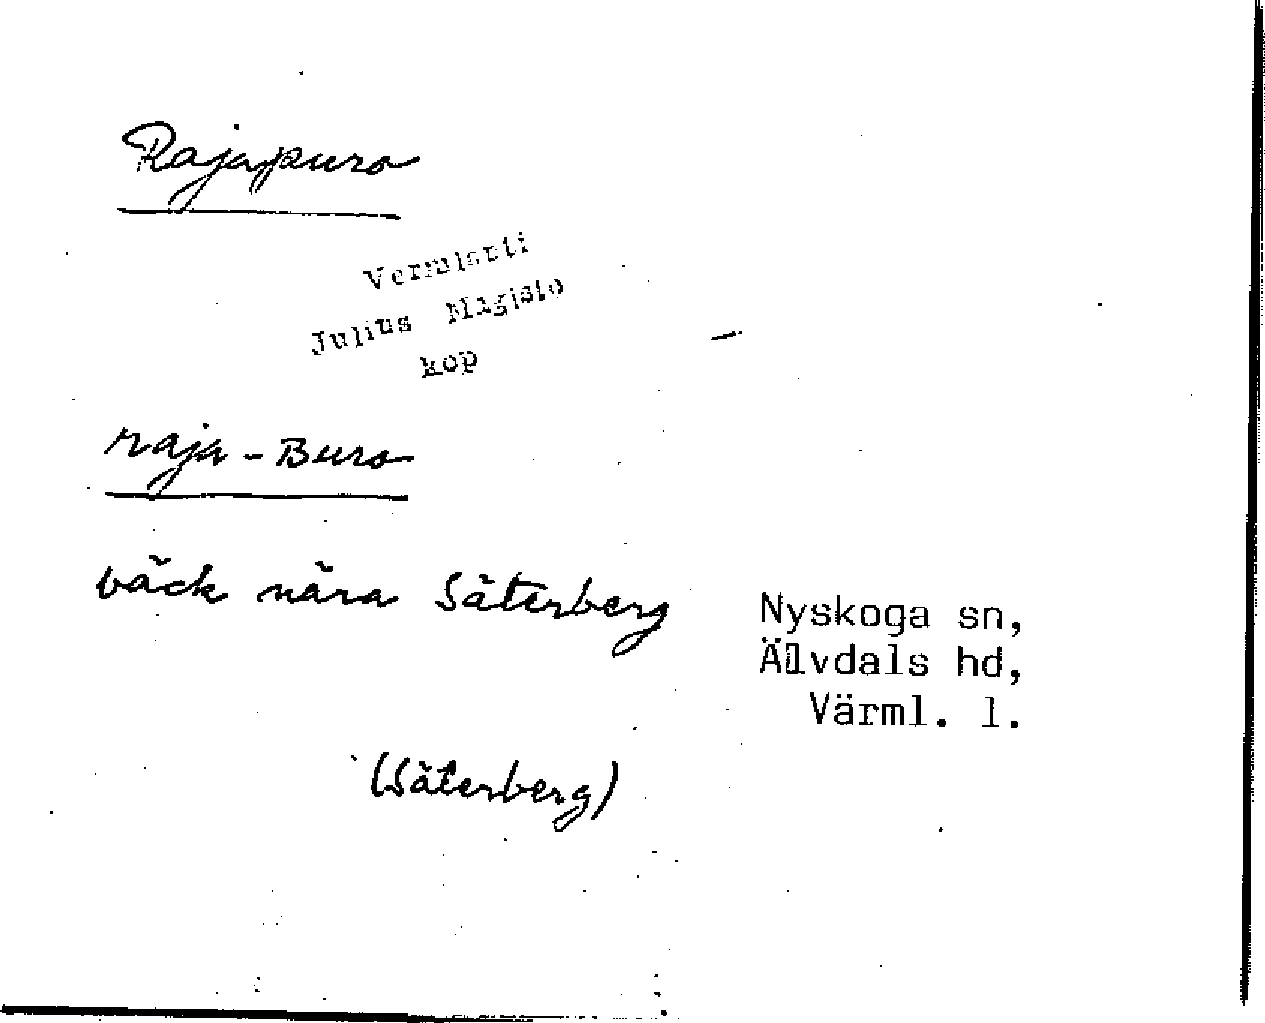 Rajapuro
Vermlanti
Julius Mägiste
kop
raja-Buro
bäck nära Säterberg
Nyskoga sn,
Älvdals hd,
Värml. l.
(Säterberg)